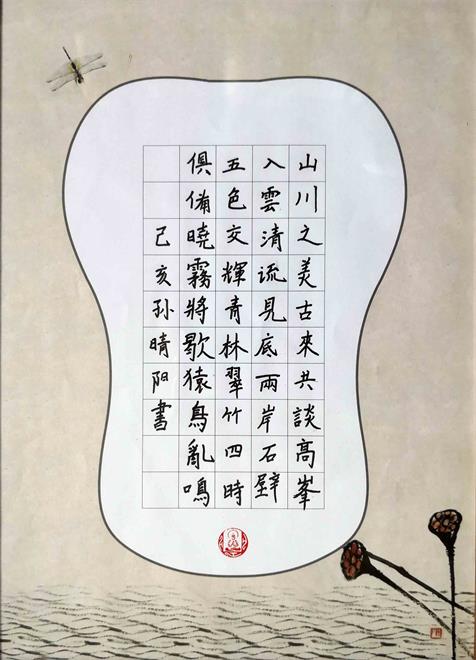 山川之美古來共談高峯
入雲清流見底兩岸石壁
五色交輝青林翠竹四時
俱備曉霧將歇猿鳥亂鳴
己亥孫晴阳書